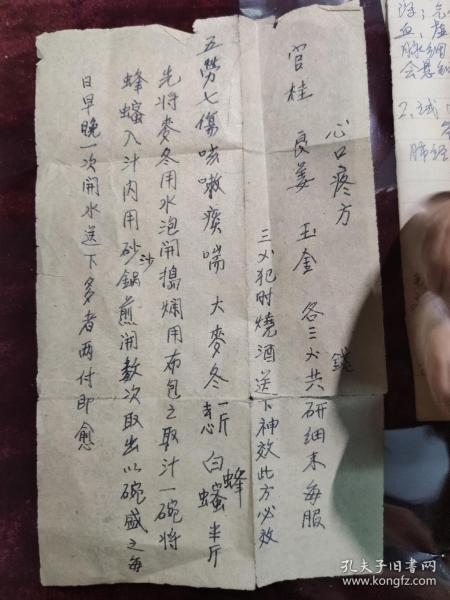 心口疼方
官桂 良姜 玉金 各三
錢
分共研細末每服
三分犯时燒酒送下神效此方必效
五劳七傷咳嗽痰喘 大麥冬一斤 白
蜂
蜜半斤
先將麥冬用水泡開搗爛用布包之取汁一碗將
蜂蜜入汁内用砂鍋煎開數次取出以碗盛之每
沙
日早晚一次開水送下多者两付即愈
血，
脉細
2、
肺经
孔夫子旧书网
www.kongfz.com